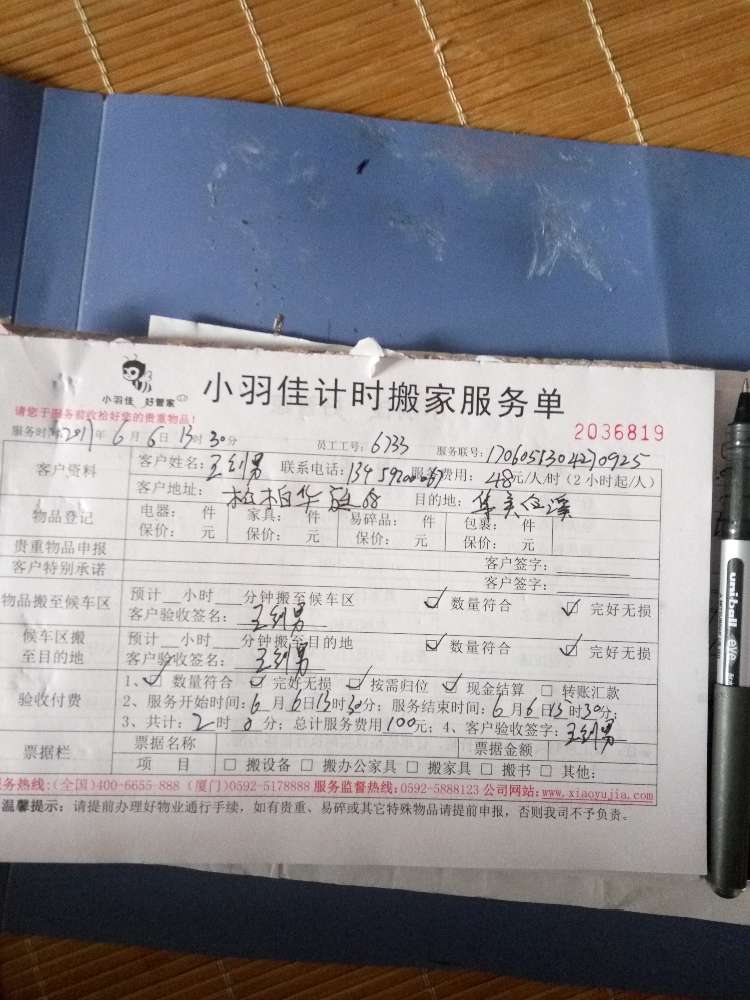 小羽佳 好管家
小羽佳计时搬家服务单
请您于服务前收拾好您的贵重物品!
2036819
服务时间2017年6月6日13时30分 员工工号:6733 服务联号:1706051304270925
客户资料 客户姓名:王剑男 联系电话: 服务费用:48元/人/时(2小时起/人)
客户地址: 柏华庭 目的地:
物品登记 电器: 件 家具: 件 易碎品: 件 包裹: 件
保价: 元 保价: 元 保价: 元 保价: 元
贵重物品申报 客户签字:
客户特别承诺 客户签字:
物品搬至候车区 预计__小时__分钟搬至候车区 ☑ 数量符合 ☑ 完好无损
客户验收签名:王剑男
候车区搬至目的地 预计__小时__分钟搬至目的地 ☑ 数量符合 ☑ 完好无损
客户验收签名:王剑男
验收付费 1、☑ 数量符合 ☑ 完好无损 ☑ 按需归位 ☑ 现金结算 □ 转账汇款
2、服务开始时间:6月6日13时30分;服务结束时间:6月6日15时30分;
3、共计:2时0分;总计服务费用100元;4、客户验收签字:王剑男
票据栏 票据名称 票据金额
项 目 □ 搬设备 □ 搬办公家具 □ 搬家具 □ 搬书 □ 其他:
务热线:(全国)400-6655-888 (厦门)0592-5178888 服务监督热线:0592-5888123 公司网站:www.xiaoyujia.com
温馨提示:请提前办理好物业通行手续,如有贵重、易碎或其它特殊物品请提前申报,否则我司不予负责。
uni-ball eye